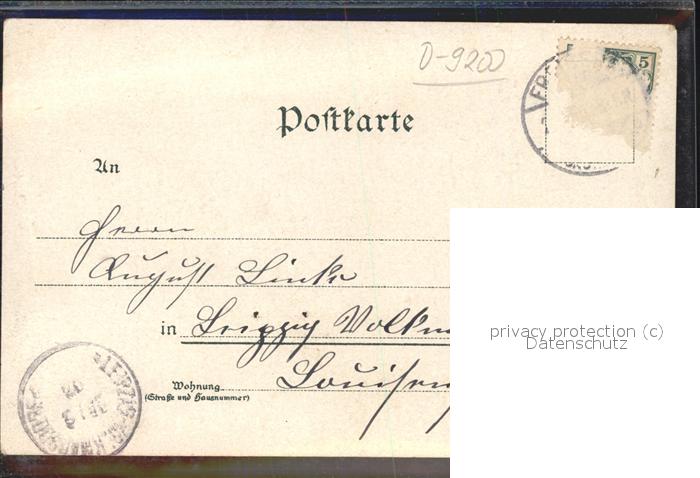 D-9200
5
Postkarte
An
Herrn
August Linke
in Leipzig Volkm
Wohnung
(Straße und Hausnummer)
Louisen
privacy protection (c)
Datenschutz